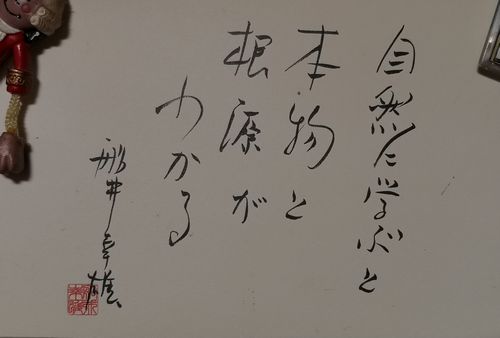 自然に学ぶと
本物と
根源が
わかる
船井幸雄